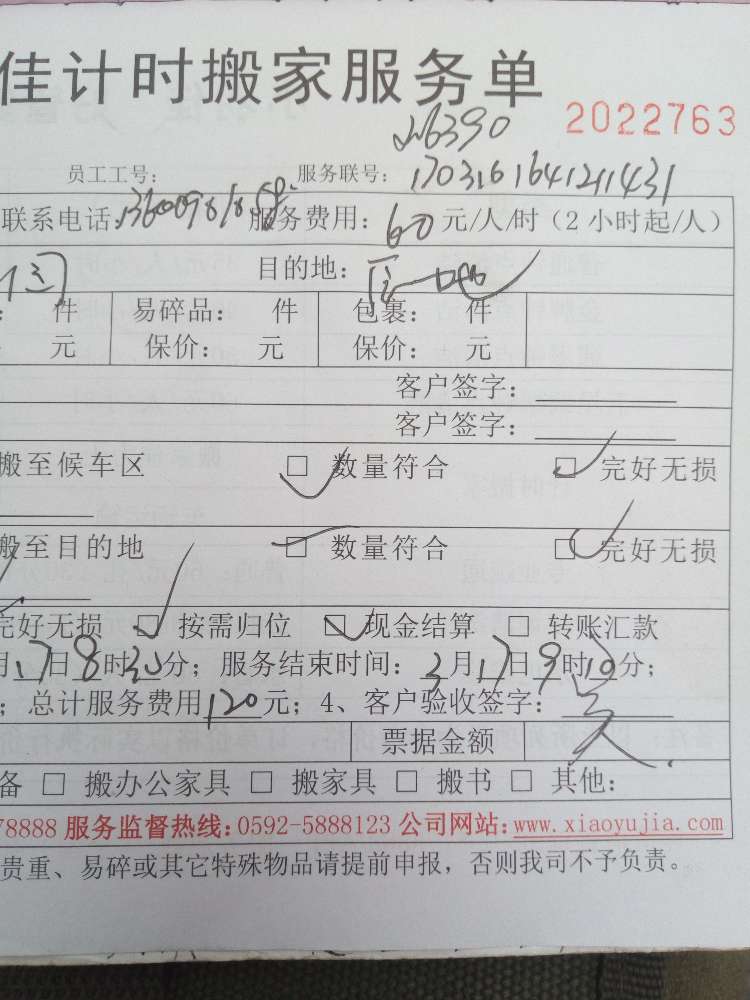 佳计时搬家服务单
2022763
员工工号: 服务联号: 1703161641211431
联系电话: 服务费用: 60元/人/时(2小时起/人)
目的地:
件 易碎品: 件 包裹: 件
元 保价: 元 保价: 元
客户签字:
客户签字:
搬至候车区 □ 数量符合 □ 完好无损
搬至目的地 □ 数量符合 □ 完好无损
完好无损 □ 按需归位 □ 现金结算 □ 转账汇款
月17日8时30分; 服务结束时间: 3月17日9时10分;
; 总计服务费用120元; 4、客户验收签字:
票据金额
备 □ 搬办公家具 □ 搬家具 □ 搬书 □ 其他:
78888 服务监督热线:0592-5888123 公司网站:www.xiaoyujia.com
贵重、易碎或其它特殊物品请提前申报，否则我司不予负责。